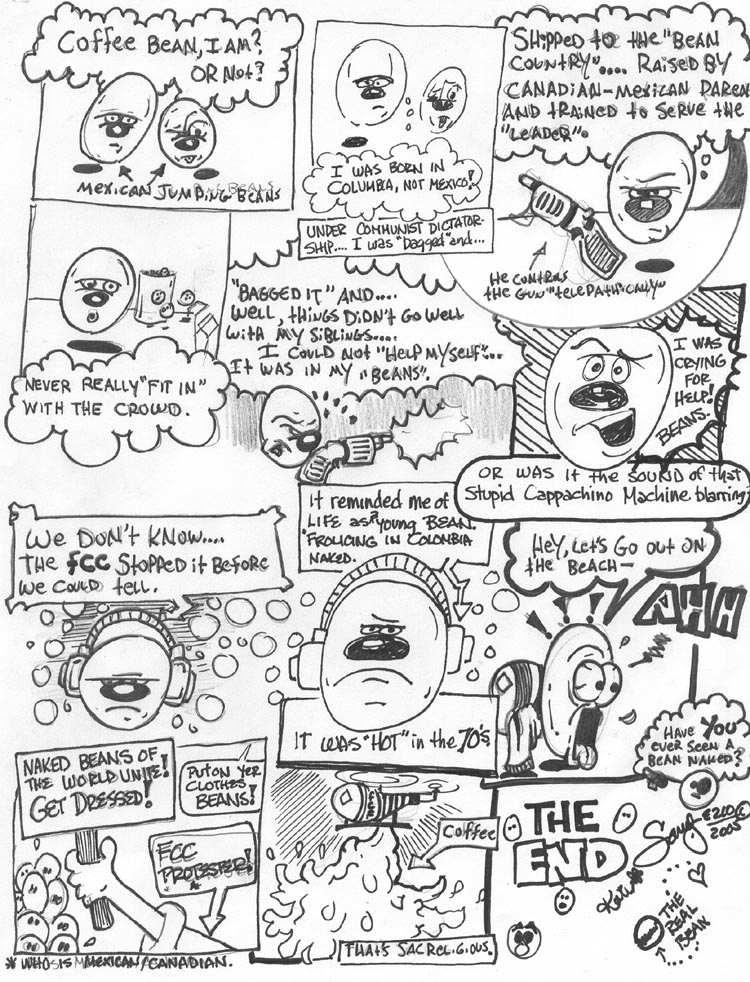 COFFEE BEAN, I AM?
OR NOT?
MEXICAN JUMPING BEANS
I WAS BORN IN
COLUMBIA, NOT MEXICO!
UNDER COMMUNIST DICTATOR-
SHIP.... I WAS "Dagged" and...
SHIPPED TO THE "BEAN
COUNTRY".... RAISED BY
CANADIAN-MEXICAN PAREN
AND TRAINED TO SERVE THE
"LEADER".
HE CONTROLS
THE GUN "TELEPATHICALLY"
NEVER REALLY "FIT IN"
WITH THE CROWD.
"BAGGED IT" AND....
WELL, THINGS DIDN'T GO WELL
WITH MY SIBLINGS....
I COULD NOT "HELP MYSELF"...
IT WAS IN MY "BEANS".
I WAS
CRYING
FOR
HELP!
BEANS.
OR WAS IT the SOUND OF that
Stupid Cappachino Machine blarring?
WE DON'T KNOW....
THE FCC STOPPED it BEFORE
WE COULD tELL.
It reminded me of
LIFE as a young BEAN.
FROLICING IN COLONBIA
NAKED.
HEY, LET'S GO OUT ON
the BEACH-
AHH
IT WAS "HOT" in the 70's
HAVE YOU
EVER SEEN A
BEAN NAKED?
NAKED BEANS OF
THE WORLD UNITE!
GET DRESSED!
PUT ON YER
CLOTHES
BEANS!
FCC
PROTESTER!
*
* WHO IS MEXICAN/CANADIAN.
COFFEE
THAT'S SACRELIGIOUS.
THE
END
2005
THE
REAL
BEAN